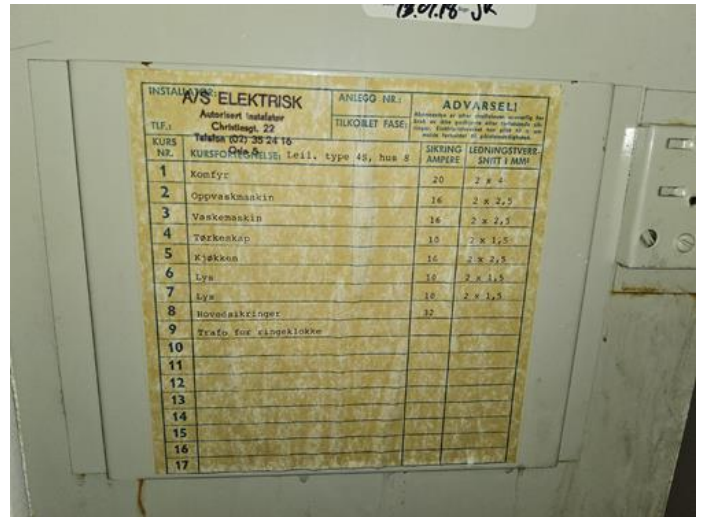 13.01.18 JK
INSTALLATØR:
A/S ELEKTRISK
Autorisert Instalatør
Christiesgt. 22
Telefon (02) 35 24 16
Oslo 5
TLF.:
ANLEGG NR.:
TILKOBLET FASE:
ADVARSEL!
KURS NR. KURSFORTEGNELSE: Leil. type 4S, hus 8 SIKRING AMPERE LEDNINGSTVERR- SNITT I MM²
1 Komfyr 20 2 x 4
2 Oppvaskmaskin 16 2 x 2,5
3 Vaskemaskin 16 2 x 2,5
4 Tørkeskap 10 2 x 1,5
5 Kjøkken 16 2 x 2,5
6 Lys 10 2 x 1,5
7 Lys 10 2 x 1,5
8 Hovedsikringer 32
9 Trafo for ringeklokke
10
11
12
13
14
15
16
17